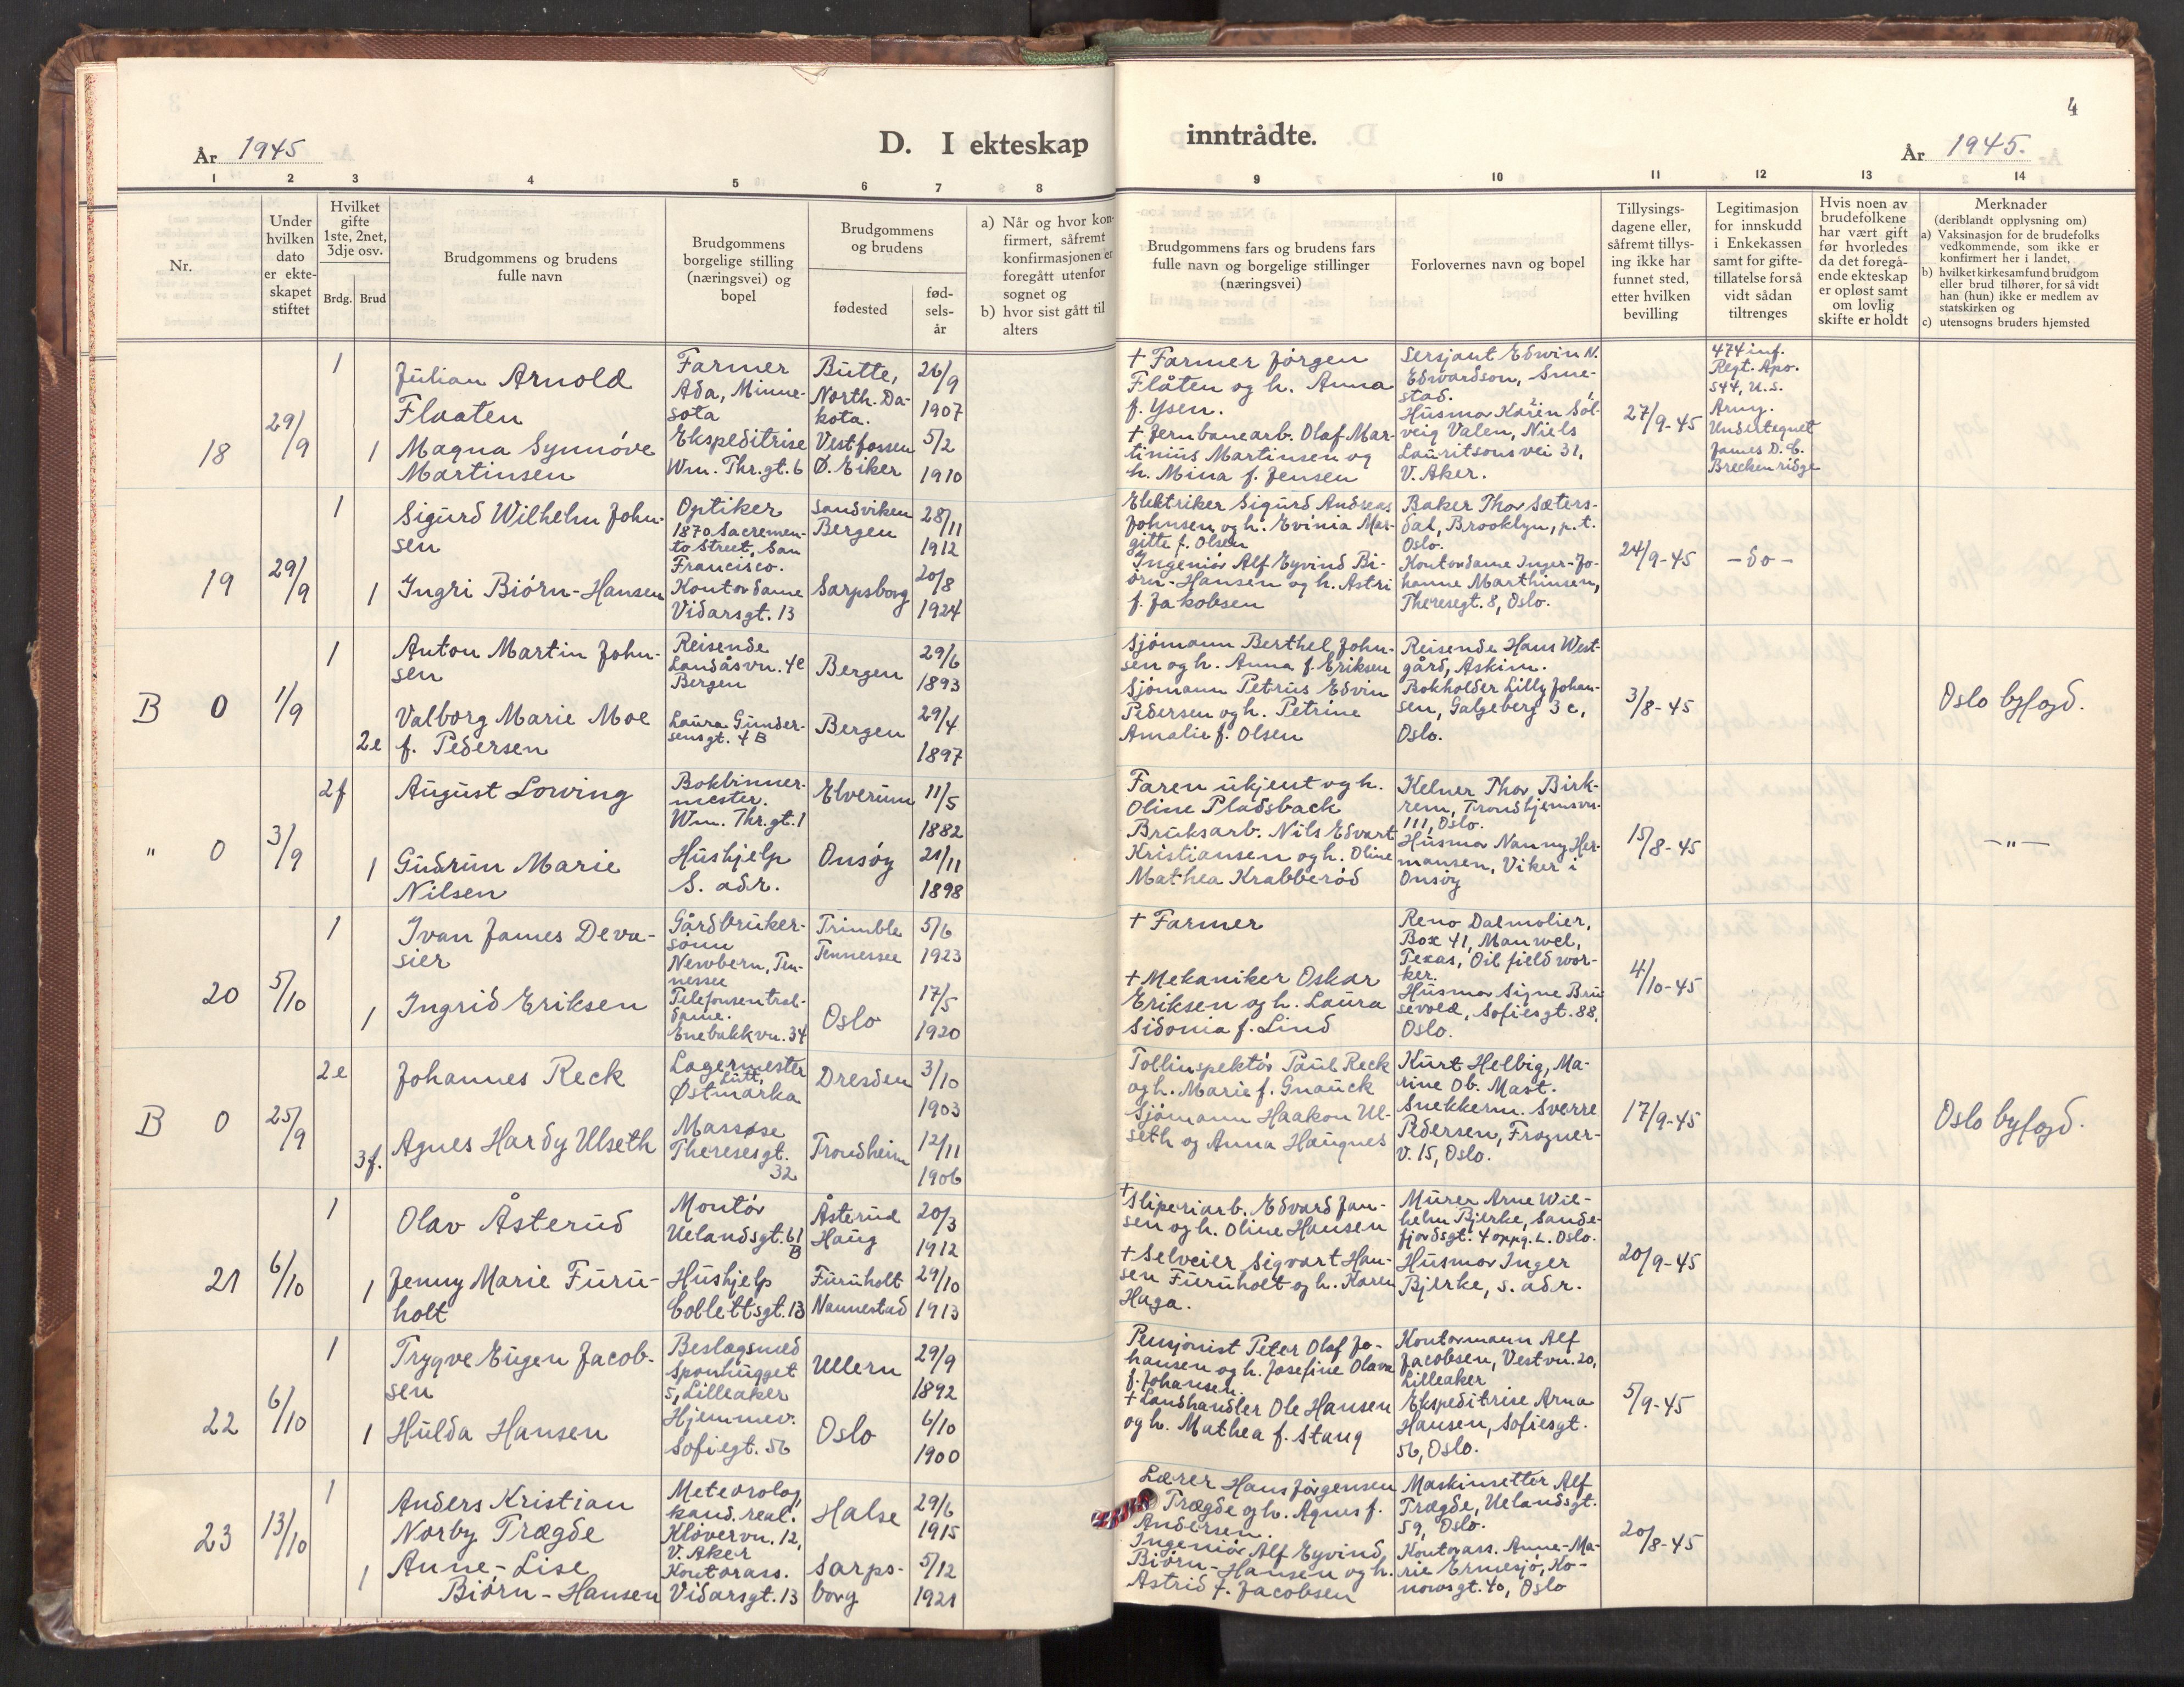 4
År 1945
D. I ekteskap inntrådte.
År 1945.
1 2 3 4 5 6 7 8 9 10 11 12 13 14
Nr.
Under
hvilken
dato
er ekte-
skapet
stiftet
Hvilket
gifte
1ste, 2net,
3dje osv.
Brdg. Brud
Brudgommens og brudens
fulle navn
Brudgommens
borgelige stilling
(næringsvei) og
bopel
Brudgommens
og brudens
fødested
fød-
sels-
år
a) Når og hvor kon-
firmert, såfremt
konfirmasjonen er
foregått utenfor
sognet og
b) hvor sist gått til
alters
Brudgommens fars og brudens fars
fulle navn og borgelige stillinger
(næringsvei)
Forlovernes navn og bopel
Tillysings-
dagene eller,
såfremt tillys-
ing ikke har
funnet sted,
etter hvilken
bevilling
Legitimasjon
for innskudd
i Enkekassen
samt for gifte-
tillatelse for så
vidt sådan
tiltrenges
Hvis noen av
brudefolkene
har vært gift
før hvorledes
da det foregå-
ende ekteskap
er opløst samt
om lovlig
skifte er holdt
Merknader
(deriblandt opplysning om)
a) Vaksinasjon for de brudefolks
vedkommende, som ikke er
konfirmert her i landet,
b) hvilket kirkesamfund brudgom
eller brud tilhører, for så vidt
han (hun) ikke er medlem av
statskirken og
c) utensogns bruders hjemsted
18
29/9
1
Julian Arnold
Flaaten
Farmer
Ada, Minne-
sota
Butte,
North. Da-
kota.
26/9
1907
1
Magna Synnöve
Martinsen
Ekspeditrise
Wm. Thr.gt. 6
Vestfossen
Ø. Eiker
5/2
1910
+ Farmer Jörgen
Flåten og h. Anna
f. Ysen.
+ Jernbanearb. Olaf Mar-
tinius Martinsen og
h. Mina f. Jensen
Sersjant Edwin N.
Edwardson, Sme-
stad.
Husmor Karen Sol-
veig Valen, Niels
Lauritsons vei 31,
V. Aker.
27/9-45
474 inf.
Regt. Apo.
544, U.S.
Army.
Undertegnet
James D. C.
Breckenridge
19
29/9
1
Sigurd Wilhelm John-
sen
Optiker
1870 Sacremen-
to Street, San
Francisco.
Sandviken
Bergen
28/11
1912
1
Ingri Biörn-Hansen
Kontordame
Vidarsgt. 13
Sarpsborg
20/8
1924
Elektriker Sigurd Andreas
Johnsen og h. Evinia Mar-
gitte f. Olsen
Ingeniör Alf Eyvind Bi-
örn-Hansen og h. Astri
f. Jakobsen
Baker Thor Sæters-
dal, Brooklyn, p.t.
Oslo.
Kontordame Inger-Jo-
hanne Marthinsen,
Theresegt. 8, Oslo.
24/9-45
-do-
B 0
1/9
1
Anton Martin John-
sen
Reisende
Landåsvn. 4e
Bergen
Bergen
29/6
1893
2e
Valborg Marie Moe
f. Pedersen
Laura Gunder-
sensgt. 4 B
Bergen
29/4
1897
Sjömann Berthel John-
sen og h. Anna f. Eriksen
Sjömann Petrus Edvin
Pedersen og h. Petrine
Amalie f. Olsen
Reisende Hans West-
gård, Askim.
Bokholder Lilly Johan-
sen, Galgeberg 3 c,
Oslo.
3/8-45
Oslo byfogd.
" 0
3/9
2f
August Lowing
Bokbinner-
mester.
Wm. Thr.gt. 1
Elverum
11/5
1882
1
Gudrun Marie
Nilsen
Hushjelp
S. adr.
Onsöy
21/11
1898
Faren ukjent og h.
Oline Pladsback
Bruksarb. Nils Edvart
Kristiansen og h. Oline
Mathea Krabberöd
Kelner Thor Birk-
rem, Trondhjemsvn.
111, Oslo.
Husmor Nanny Her-
mansen, Viker i
Onsöy
15/8-45
-"-
20
5/10
1
Ivan James Deva-
sier
Gårdbruker-
sönn
Newbern, Ten-
nessee
Trimble
Tennessee
5/6
1923
1
Ingrid Eriksen
Telefonsentral-
dame.
Enebakkvn. 34
Oslo
17/5
1920
+ Farmer
+ Mekaniker Oskar
Eriksen og h. Laura
Sidonia f. Lind
Reno Dalmolier,
Box 41, Manwel,
Texas, Oil field wor-
ker.
Husmor Signe Bru
sevold, Sofiesgt. 88,
Oslo.
4/10-45
B 0
25/9
2e
Johannes Reck
Lagermester
Lutt,
Østmarka
Dresden
3/10
1903
3f.
Agnes Hardy Ulseth
Massøse
Theresesgt.
32
Trondheim
12/11
1906
Tollinspektör Paul Reck
og h. Marie f. Gnauck
Sjömann Haakon Ul-
seth og Anna Haugnes
Kurt Helbig, Ma-
rine Ob. Mast.
Snekkerm. Sverre
Pedersen, Frogner-
v. 15, Oslo.
17/9-45
Oslo byfogd.
21
6/10
1
Olav Åsterud
Montör
Uelandsgt. 61
B
Åsterud
Haug
20/3
1912
1
Jenny Marie Furu-
holt
Hushjelp
Collettsgt. 13
Furuholt
Nannestad
29/10
1913
+ Sliperiarb. Edvard Jan-
sen og h. Oline Hansen
+ Selveier Sigvart Han-
sen Furuholt og h. Karen
Haga.
Murer Arne Wil-
helm Bjerke, Sande-
fjordsgt. 4 oppg. L. Oslo.
Husmor Inger
Bjerke, s. adr.
20/9-45
22
6/10
1
Trygve Eugen Jacob-
sen
Beslagsmed
Sponhugget
5, Lilleaker
Ullern
29/9
1892
1
Hulda Hansen
Hjemmev.
Sofiegt. 56
Oslo
6/10
1900
Pensjonist Peter Olaf Jo-
hansen og h. Josefine Olava
f. Johansen.
+ Landhandler Ole Hansen
og h. Mathea f. Stang
Kontormann Alf
Jacobsen, Vestvn. 20,
Lilleaker
Ekspeditrise Arna
Hansen, Sofiesgt.
56, Oslo.
5/9-45
23
13/10
1
Anders Kristian
Norby Trægde
Meteorolog,
kand. real.
Klövervn. 12,
V. Aker
Halse
29/6
1915
1
Anne-Lise
Biörn-Hansen
Kontorass.
Vidarsgt. 13
Sarps-
borg
5/12
1921
Lærer Hans Jörgensen
Trægde og h. Agnes f.
Andersen.
Ingeniör Alf Eyvind
Biörn-Hansen og h.
Astrid f. Jacobsen
Maskinsetter Alf
Trægde, Uelandsgt.
59, Oslo.
Kontorass. Anne-Ma-
rie Ernesjö, Ko-
nowsgt. 40, Oslo
20/8-45